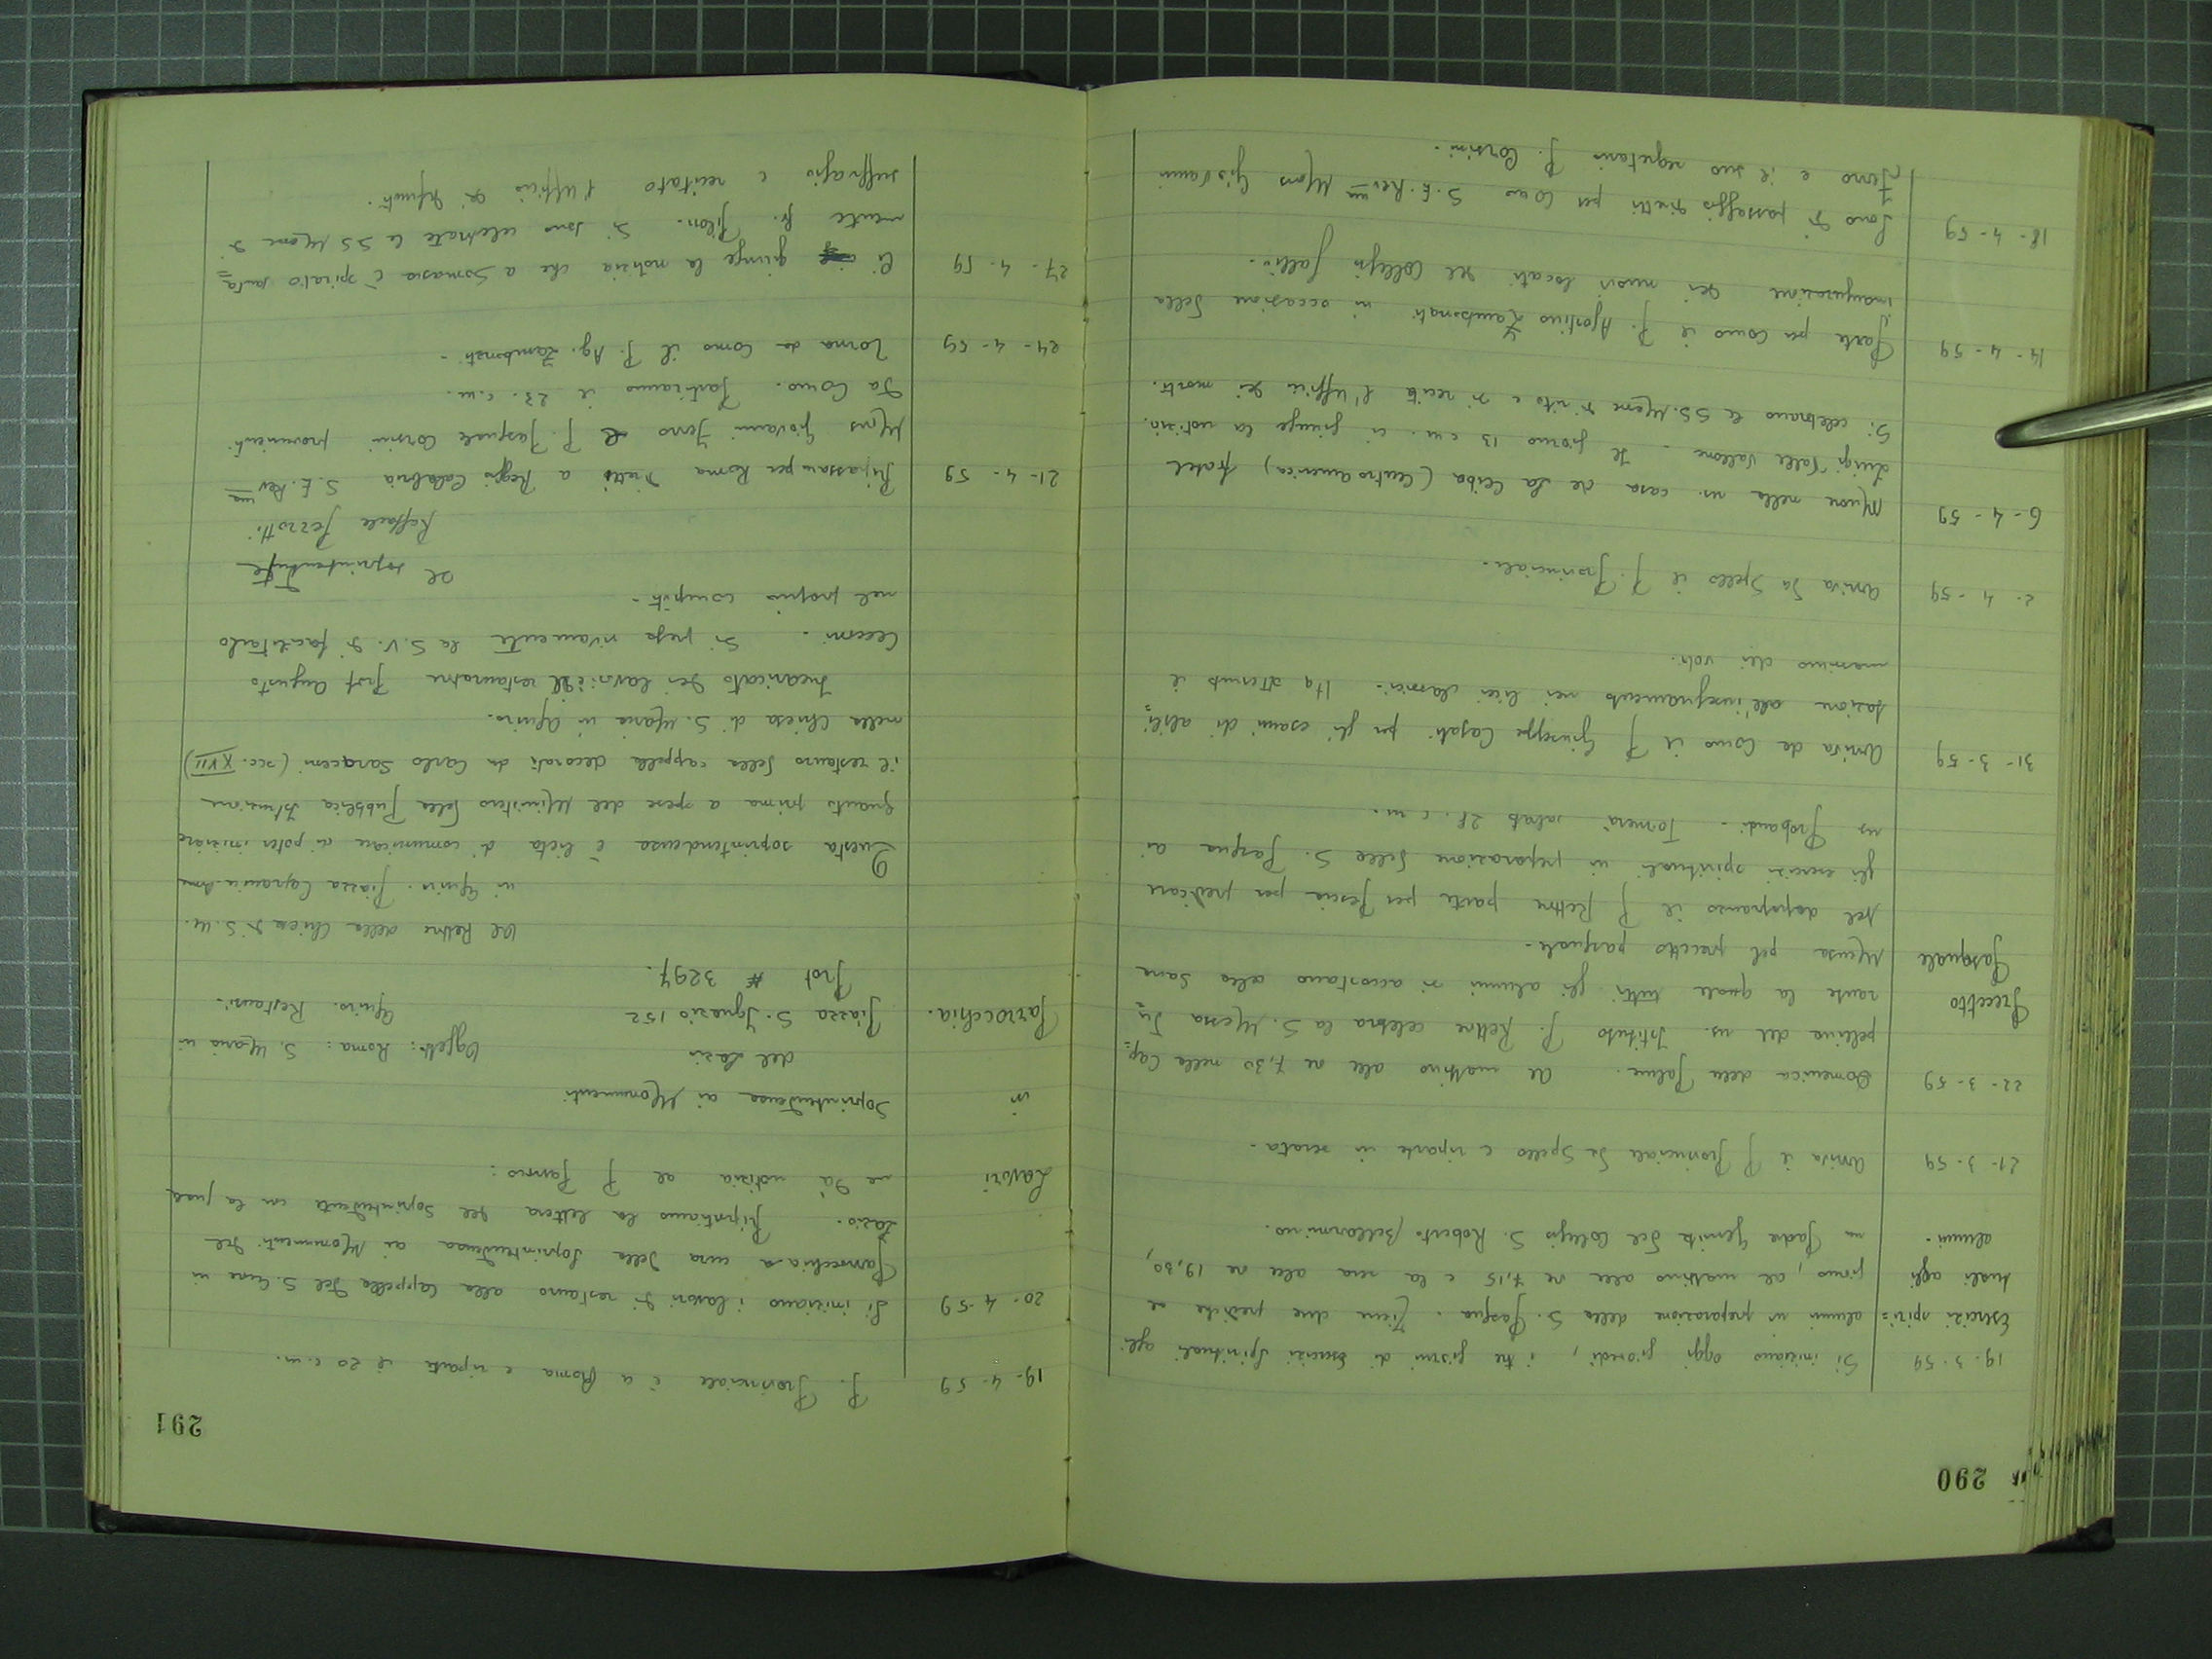 290
19-3-59 Si iniziano oggi, giovedì, i tre giorni di Esercizi Spirituali agli
Esercizi spiri= alunni in preparazione della S. Pasqua. Tiene due prediche al
tuali agli giorno, al mattino alle ore 7,15 e la sera alle ore 19,30,
alunni. un Padre Gesuita del Collegio S. Roberto Bellarmino.
21-3-59 Arriva il P. Provinciale da Spello e riparte in serata.
22-3-59 Domenica delle Palme. Al mattino alle ore 7,30 nella Cap=
pellina del ns. Istituto P. Rettore celebra la S. Messa du=
Precetto rante la quale tutti gli alunni si accostano alla Sacra
Pasquale Mensa pel precetto pasquale.
Nel dopopranzo il P. Rettore parte per Pescia per predicare
gli esercizi spirituali in preparazione della S. Pasqua ai
ns Probandi. Tornerà sabato 28. c.m.
31-3-59 Arriva da Como il P. Giuseppe Casati per gli esami di abili=
tazione all'insegnamento nei licei classici. Ha ottenuto il
massimo dei voti.
2-4-59 Arriva da Spello il P. Provinciale.
6-4-59 Muore nella ns. casa de La Ceiba (Centro america) fratel
Luigi Valle Vallone. Il giorno 13 c.m. ci giunge la notizia.
Si celebrano le SS. Messe di rito e si recita l'Ufficio dei morti.
14-4-59 Parte per Como il P. Agostino Zambonati in occasione della
inaugurazione dei nuovi locali del Collegio Gallio.
18-4-59 Sono di passaggio diretti per Como S. E. Rev.ma Mons Giovanni
Ferro e il suo segretario P. Corsini.
291
19-4-59 P. Provinciale è a Roma e riparte il 20 c.m.
20-4-59 Si iniziano i lavori di restauro alla Cappella del S. Cuore in
Parrocchia a cura della Soprintendenza ai Monumenti del
Lazio. Riportiamo la lettera del Soprintendente con la quale
Lavori ne dà notizia al P. Parroco:
in Soprintendenza ai Monumenti
del Lazio Oggetto: Roma: S. Maria in
Parrocchia. Piazza S. Ignazio 152 Aquiro. Restauri.
Prot # 3297.
Al Rettore della Chiesa di S. M.
in Aquiro. Piazza Capranica Roma
Questa soprintendenza è lieta di comunicare di poter iniziare
quanto prima a spese del Ministero della Pubblica Istruzione
il restauro della cappella decorata da Carlo Saraceni (sec. XVII)
nella Chiesa di S. Maria in Aquiro.
Incaricato dei lavori è il restauratore Prof Augusto
Cecconi. Si prega vivamente la S.V. di facilitarlo
nel proprio compito.
Il soprintendente
Raffaele Pezzotti
21-4-59 Ripassano per Roma diretti a Reggio Calabria S. E. Rev.ma
Mons Giovanni Ferro e P. Pasquale Corsini provenienti
da Como. Partiranno il 23. c.m.
24-4-59 Torna da Como il P. Ag. Zambonati.
27-4-59 Ci giunge la notizia che a Somasca è spirato santa=
mente fr. Si sono celebrate le SS Messe di
suffragio e recitato l'ufficio dei defunti.